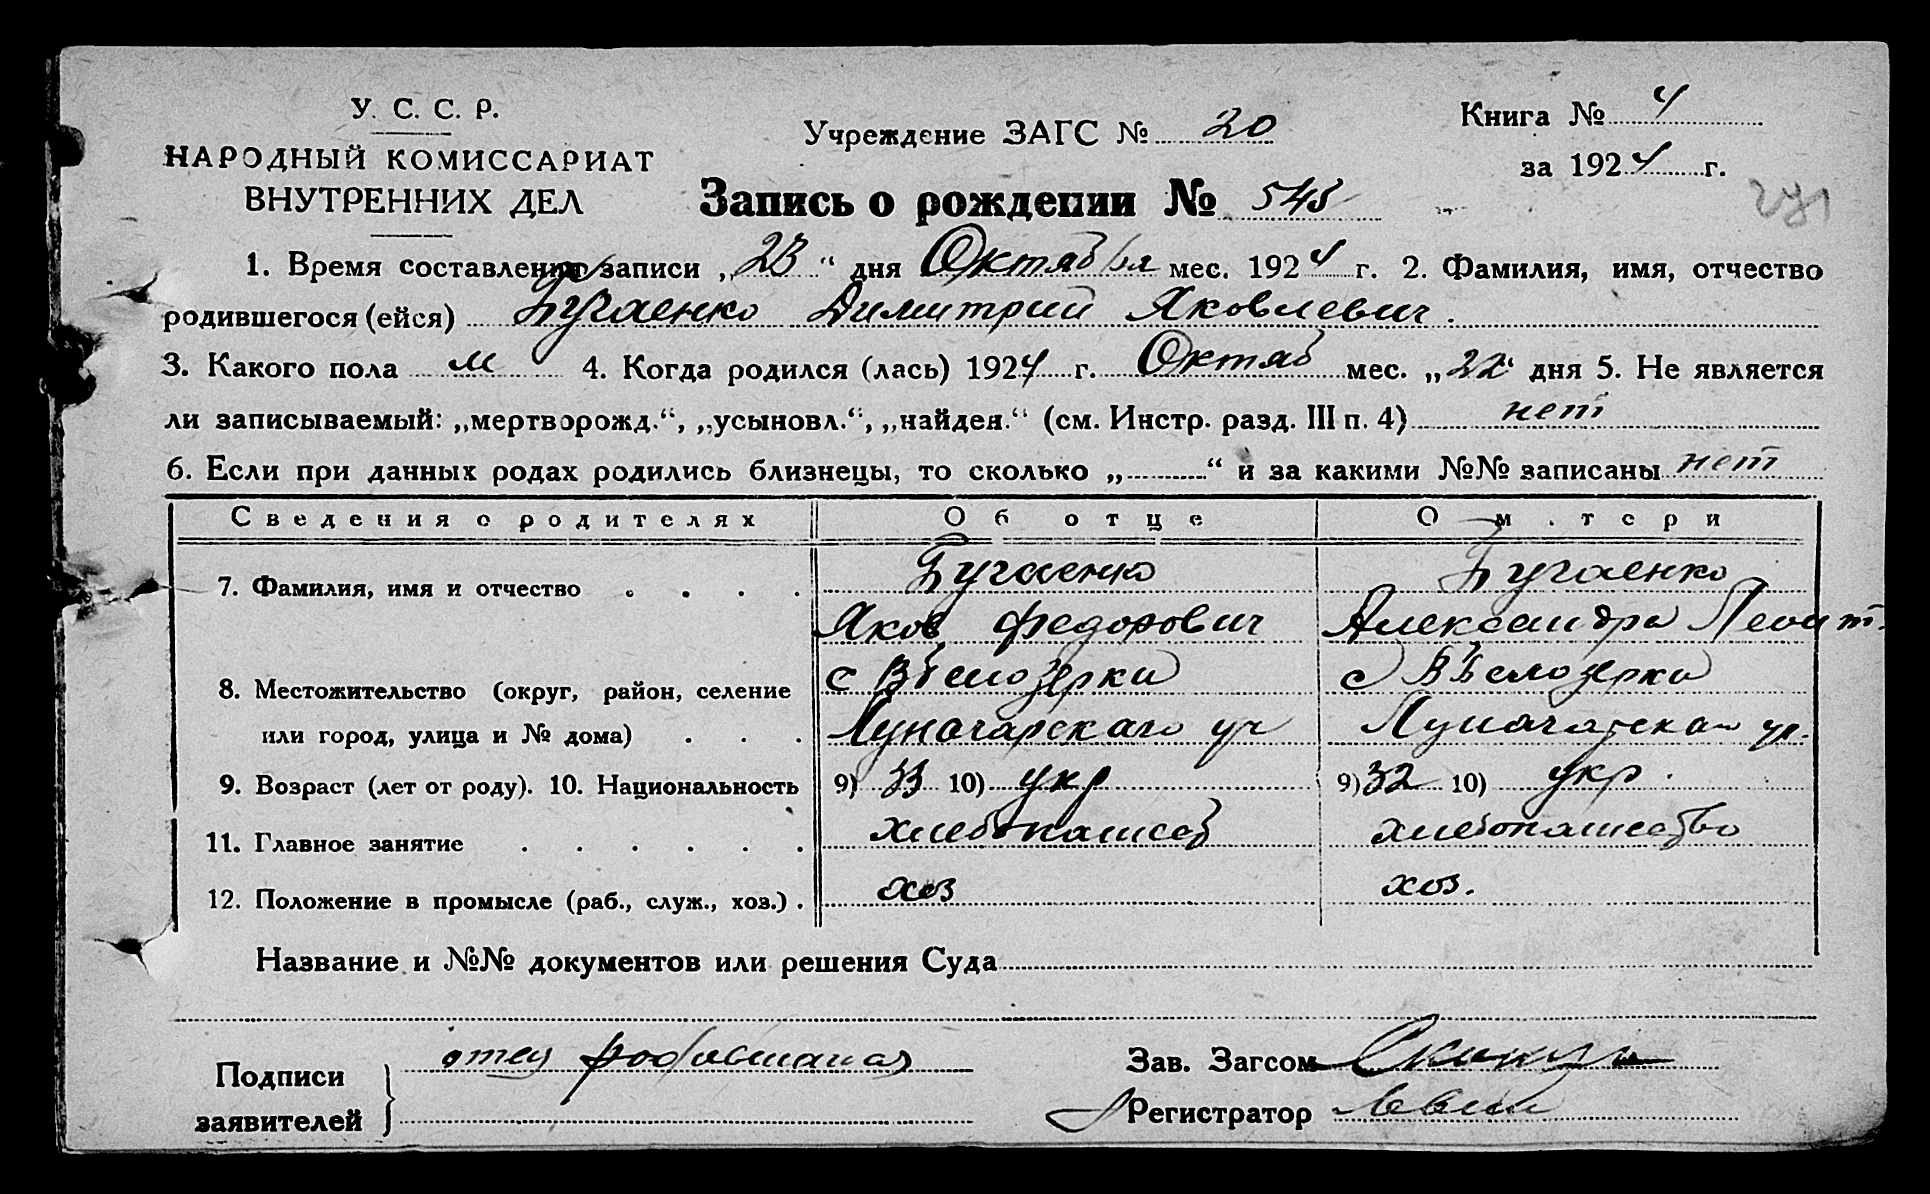 У. С. С. Р.
НАРОДНЫЙ КОМИССАРИАТ
ВНУТРЕННИХ ДЕЛ
Учреждение ЗАГС № 20
Книга № 4
за 1924 г.
Запись о рождении № 545
271
1. Время составления записи „23“ дня Октября мес. 1924 г. 2. Фамилия, имя, отчество
родившегося (ейся) Бугаенко Димитрий Яковлевич.
3. Какого пола м 4. Когда родился (лась) 1924 г. Октяб мес. „22“ дня 5. Не является
ли записываемый: „мертворожд.“, „усыновл.“, „найден.“ (см. Инстр. разд. III п. 4) нет
6. Если при данных родах родились близнецы, то сколько „ “ и за какими №№ записаны нет
Сведения о родителях Об отце О м.тери
7. Фамилия, имя и отчество Бугаенко Бугаенко
Яков Федорович Александра
8. Местожительство (округ, район, селение с Белозерки с Белозерки
или город, улица и № дома) Луначарскаго уч Луначарскаго ул.
9. Возраст (лет от роду). 10. Национальность 9) 33 10) укр 9) 32 10) укр.
11. Главное занятие хлебопашеств хлебопашество
12. Положение в промысле (раб., служ., хоз.) хоз хоз.
Название и №№ документов или решения Суда
Подписи
заявителей
отец
Зав. Загсом
Регистратор